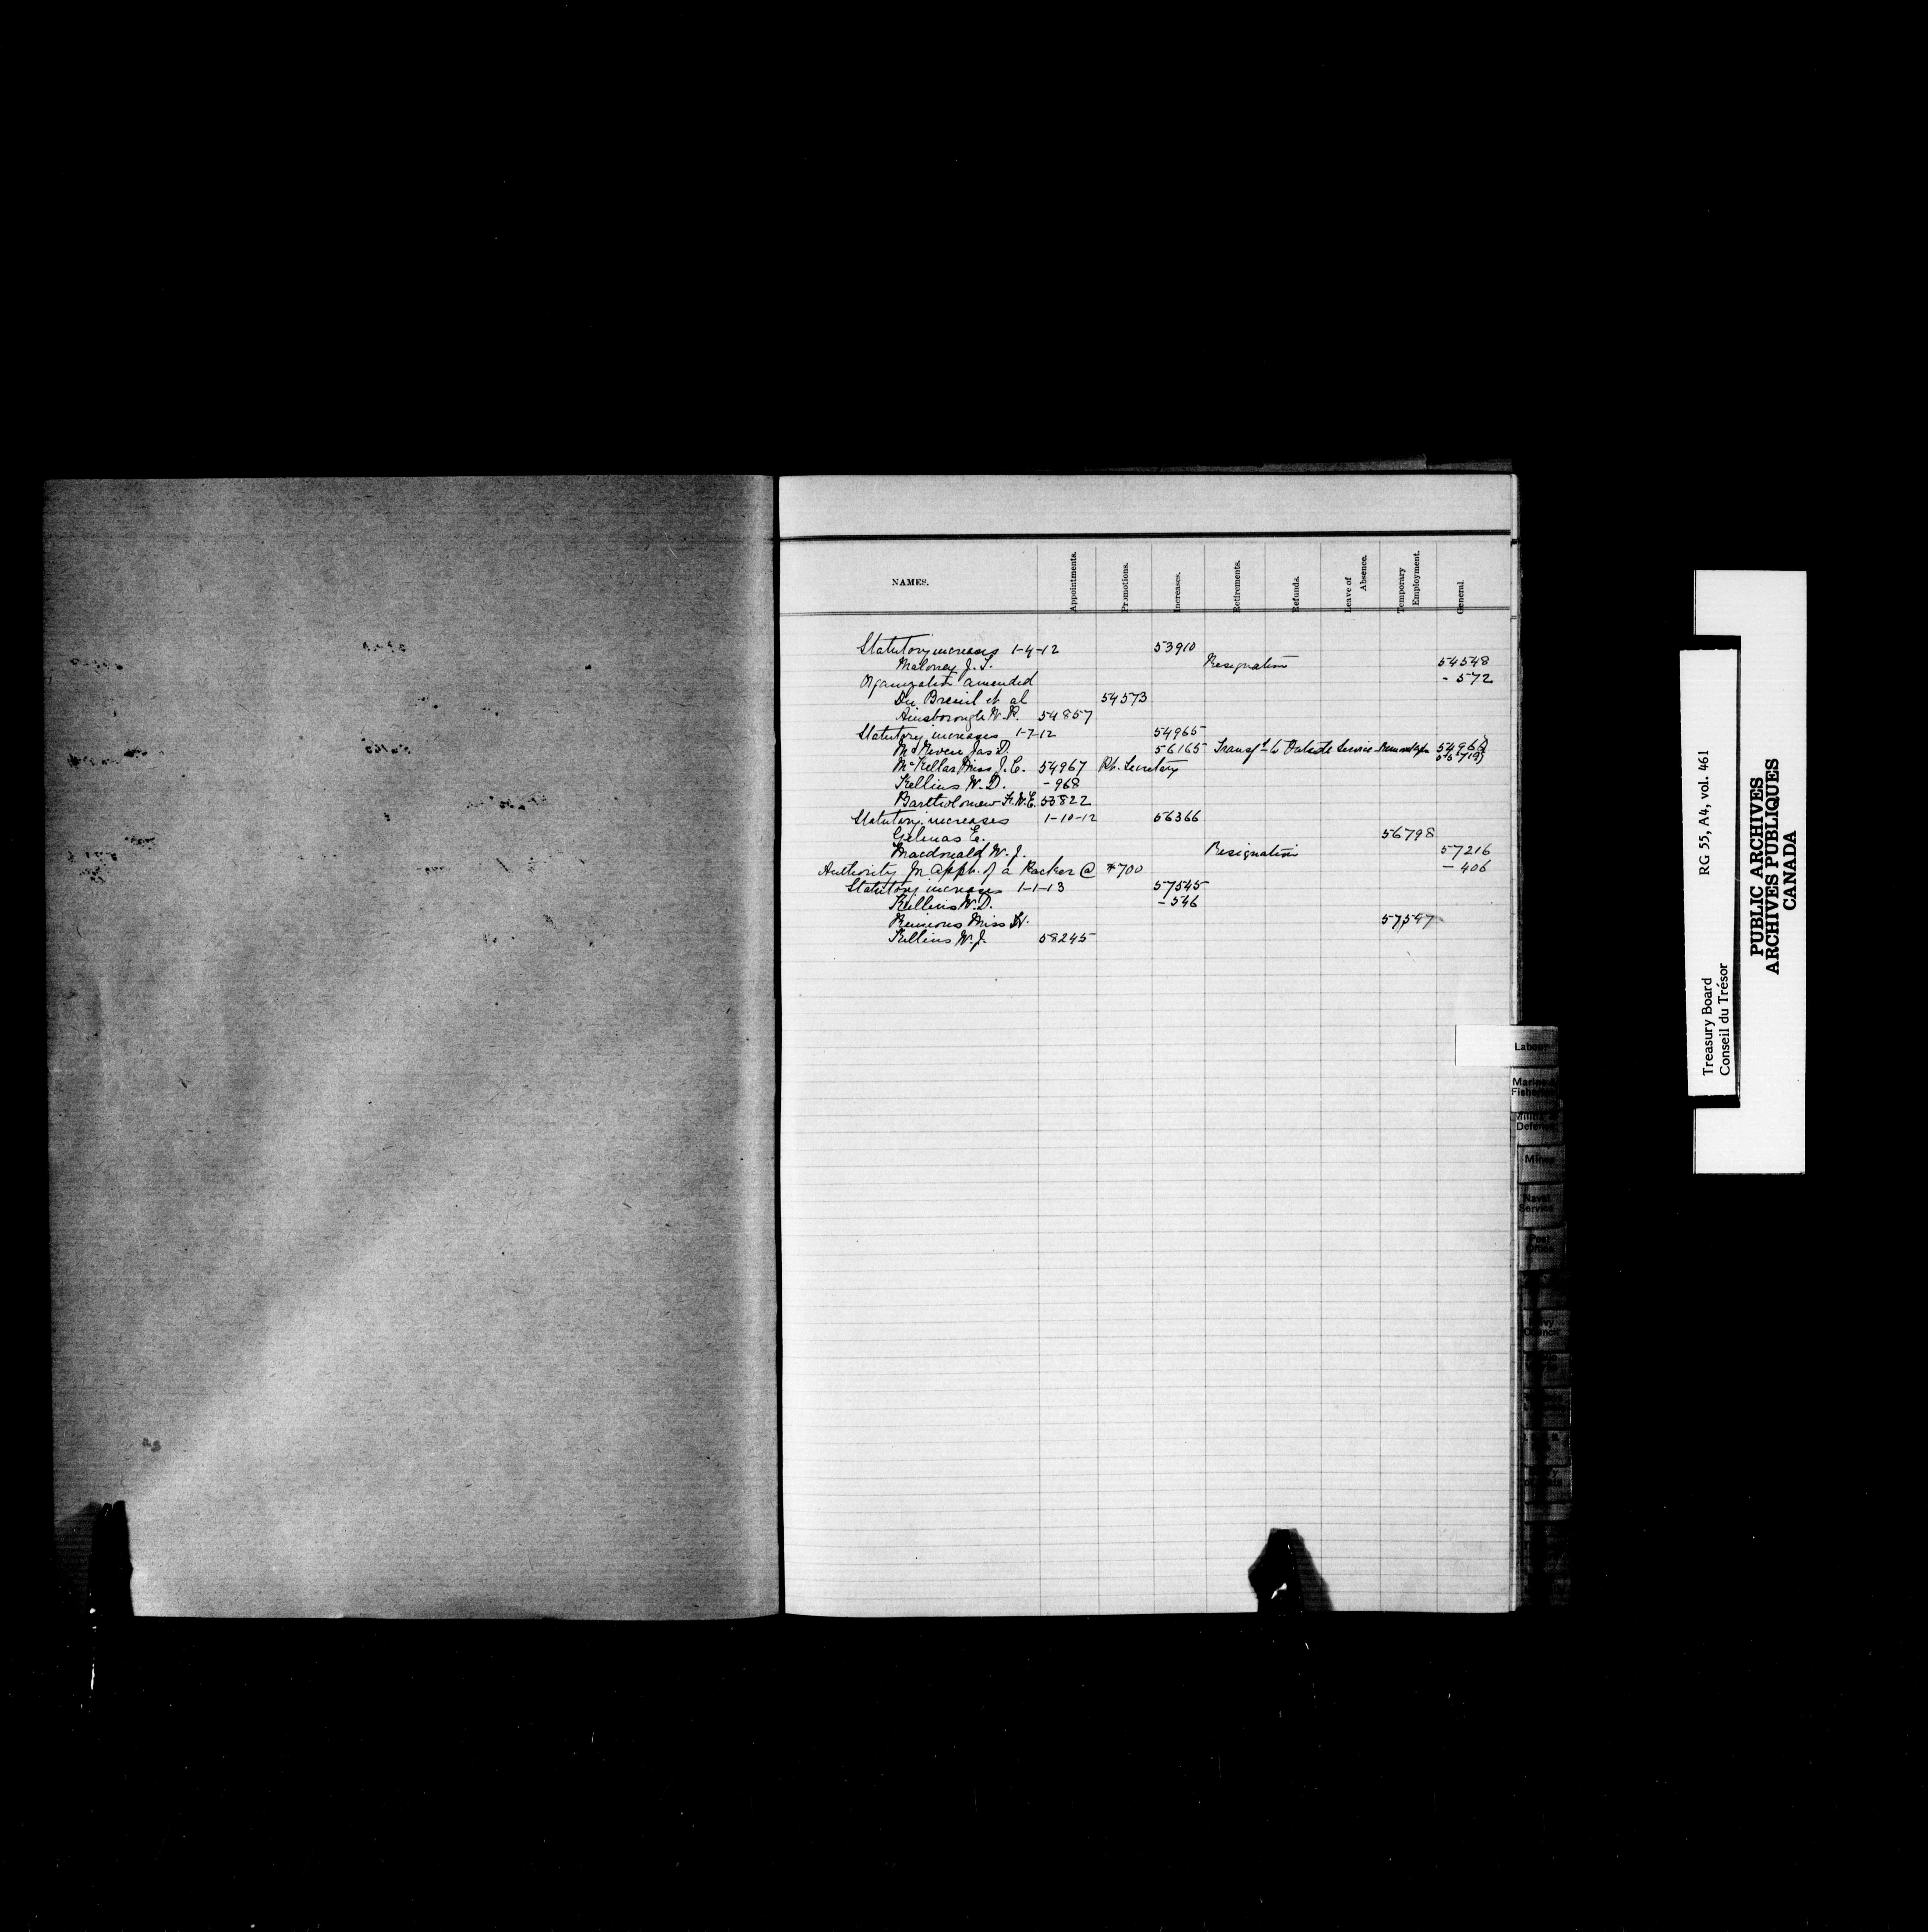 NAMES. Appointments. Promotions. Increases. Retirements. Refunds. Leave of Absence. Temporary Employment. General.
Statutory increases 1-4-12 53910
Maloney J. T. Resignation 54548
Organization amended - 572
Du Breuil et al 54573
Ainsborough W. R. 54857
Statutory increases 1-7-12 54965
McNiven Jas D. 56165 Transf. to Outside Service 54966
McKellar Miss J. C. 54967 Pt. Secretary
Killins W. D. - 968
Bartholomew F. W. E. 53822
Statutory increases 1-10-12 56366
Gelinas E. 56798
Macdonald W. J. Resignation 57216
Authority for appt. of a Packer @ $700 - 406
Statutory increases 1-1-13 57545
Killins W. D. - 546
Miss 57547
Killins W. J. 58245
Labour
Marine & Fisheries
Militia & Defence
Mines
Naval Service
Post Office
Privy Council
Treasury Board
Conseil du Trésor
RG 55, A4, vol. 461
PUBLIC ARCHIVES
ARCHIVES PUBLIQUES
CANADA